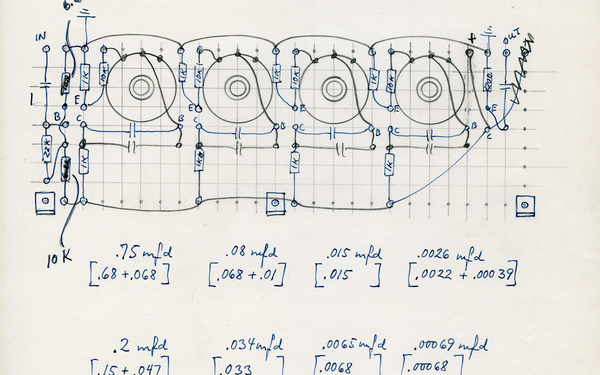 IN OUT
1K 10K 1K 10K 1K 10K 1K 10K
E E E E E
B C B C B C B C B C
22K 1K 1K 1K 1K
10K
.75 mfd .08 mfd .015 mfd .0026 mfd
[.68 + .068] [.068 + .01] [.015] [.0022 + .00039]
.2 mfd .034 mfd .0065 mfd .00069 mfd
[.15 + .047] [.033 [.0068 [.00068]